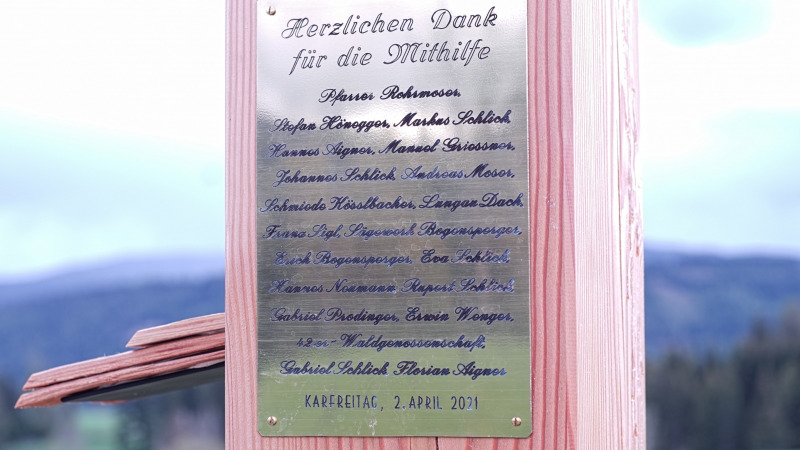 Herzlichen Dank
für die Mithilfe
Pfarrer Rohrmoser,
Stefan Hönegger, Markus Schlick,
Hannes Aigner, Manuel Griessner,
Johannes Schlick, Andreas Moser,
Schmiede Kösslbacher, Lungau Dach,
Franz Sigl, Sägewerk Bogensperger,
Erich Bogensperger, Eva Schlick,
Hannes Neumann, Rupert Schlick,
Gabriel Prodinger, Erwin Wenger,
42er-Waldgenossenschaft,
Gabriel Schlick Florian Aigner
KARFREITAG, 2. APRIL 2021